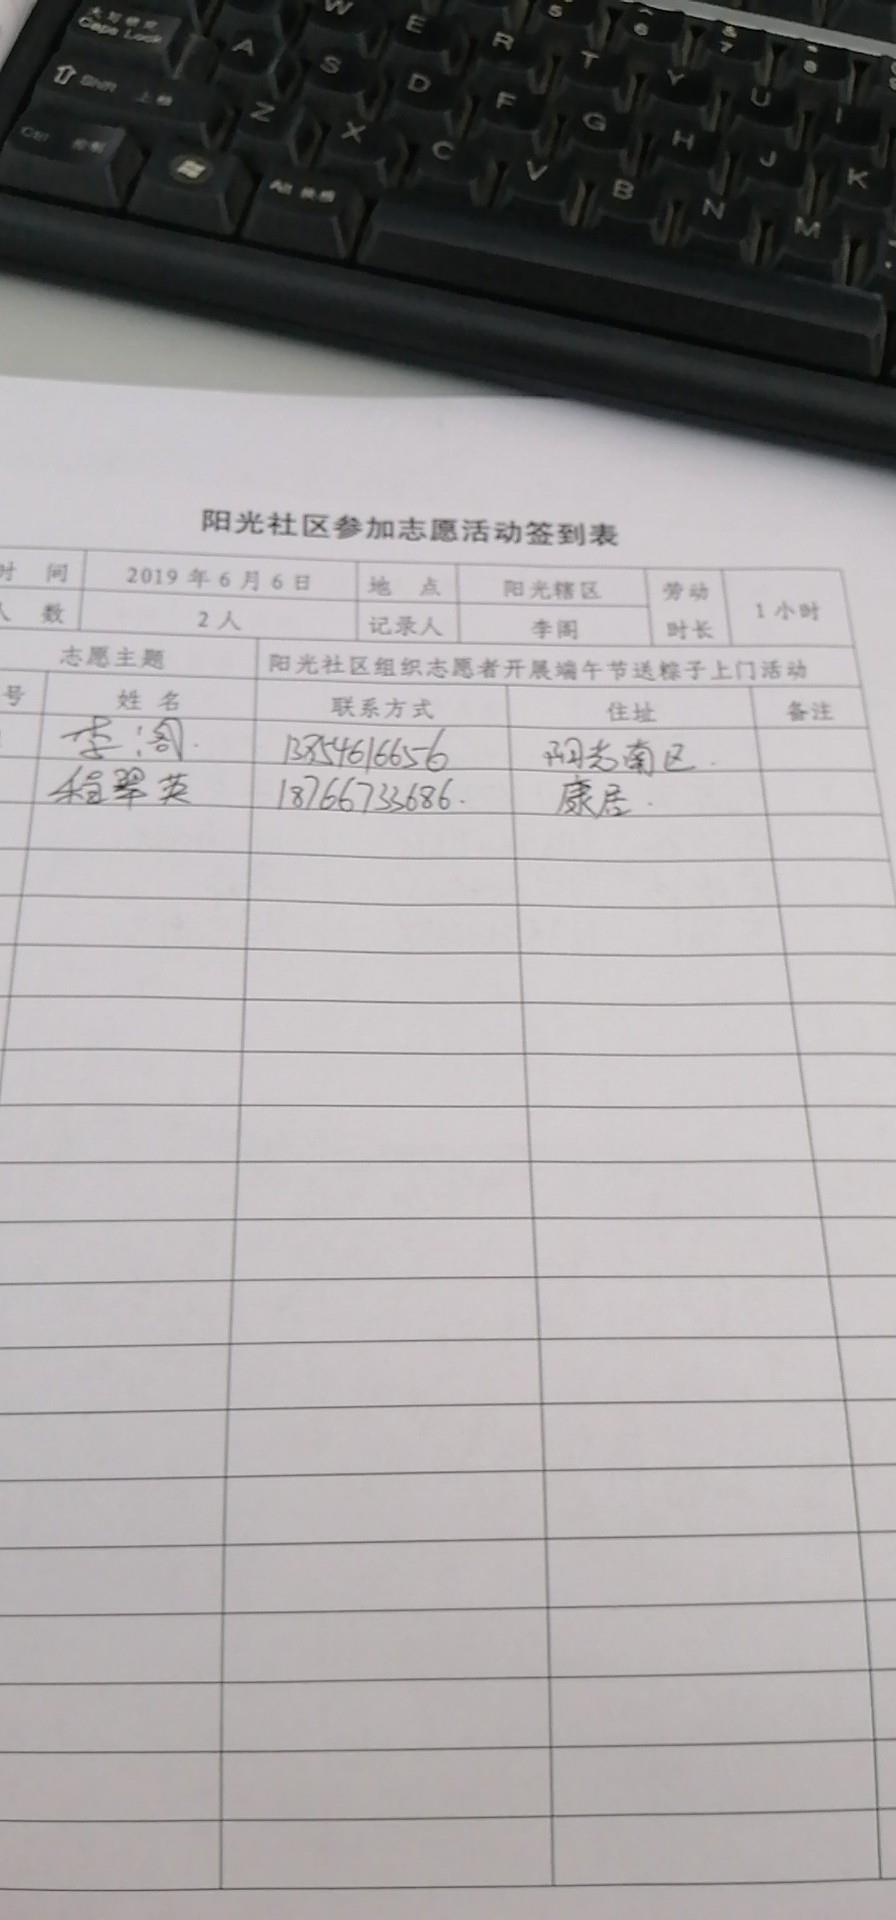 W E R T Y U I
5 6 7 8
大写锁定
Caps Lock
A S D F G H J K
Shift 上档
Z X C V B N M
Ctrl 控制
Alt 换档
阳光社区参加志愿活动签到表
时 间 2019年6月6日 地 点 阳光辖区 劳动时长 1小时
人 数 2人 记录人 李阁
志愿主题 阳光社区组织志愿者开展端午节送粽子上门活动
号 姓名 联系方式 住址 备注
李阁 13854616656 阳光南区
程翠英 18766733686 康居